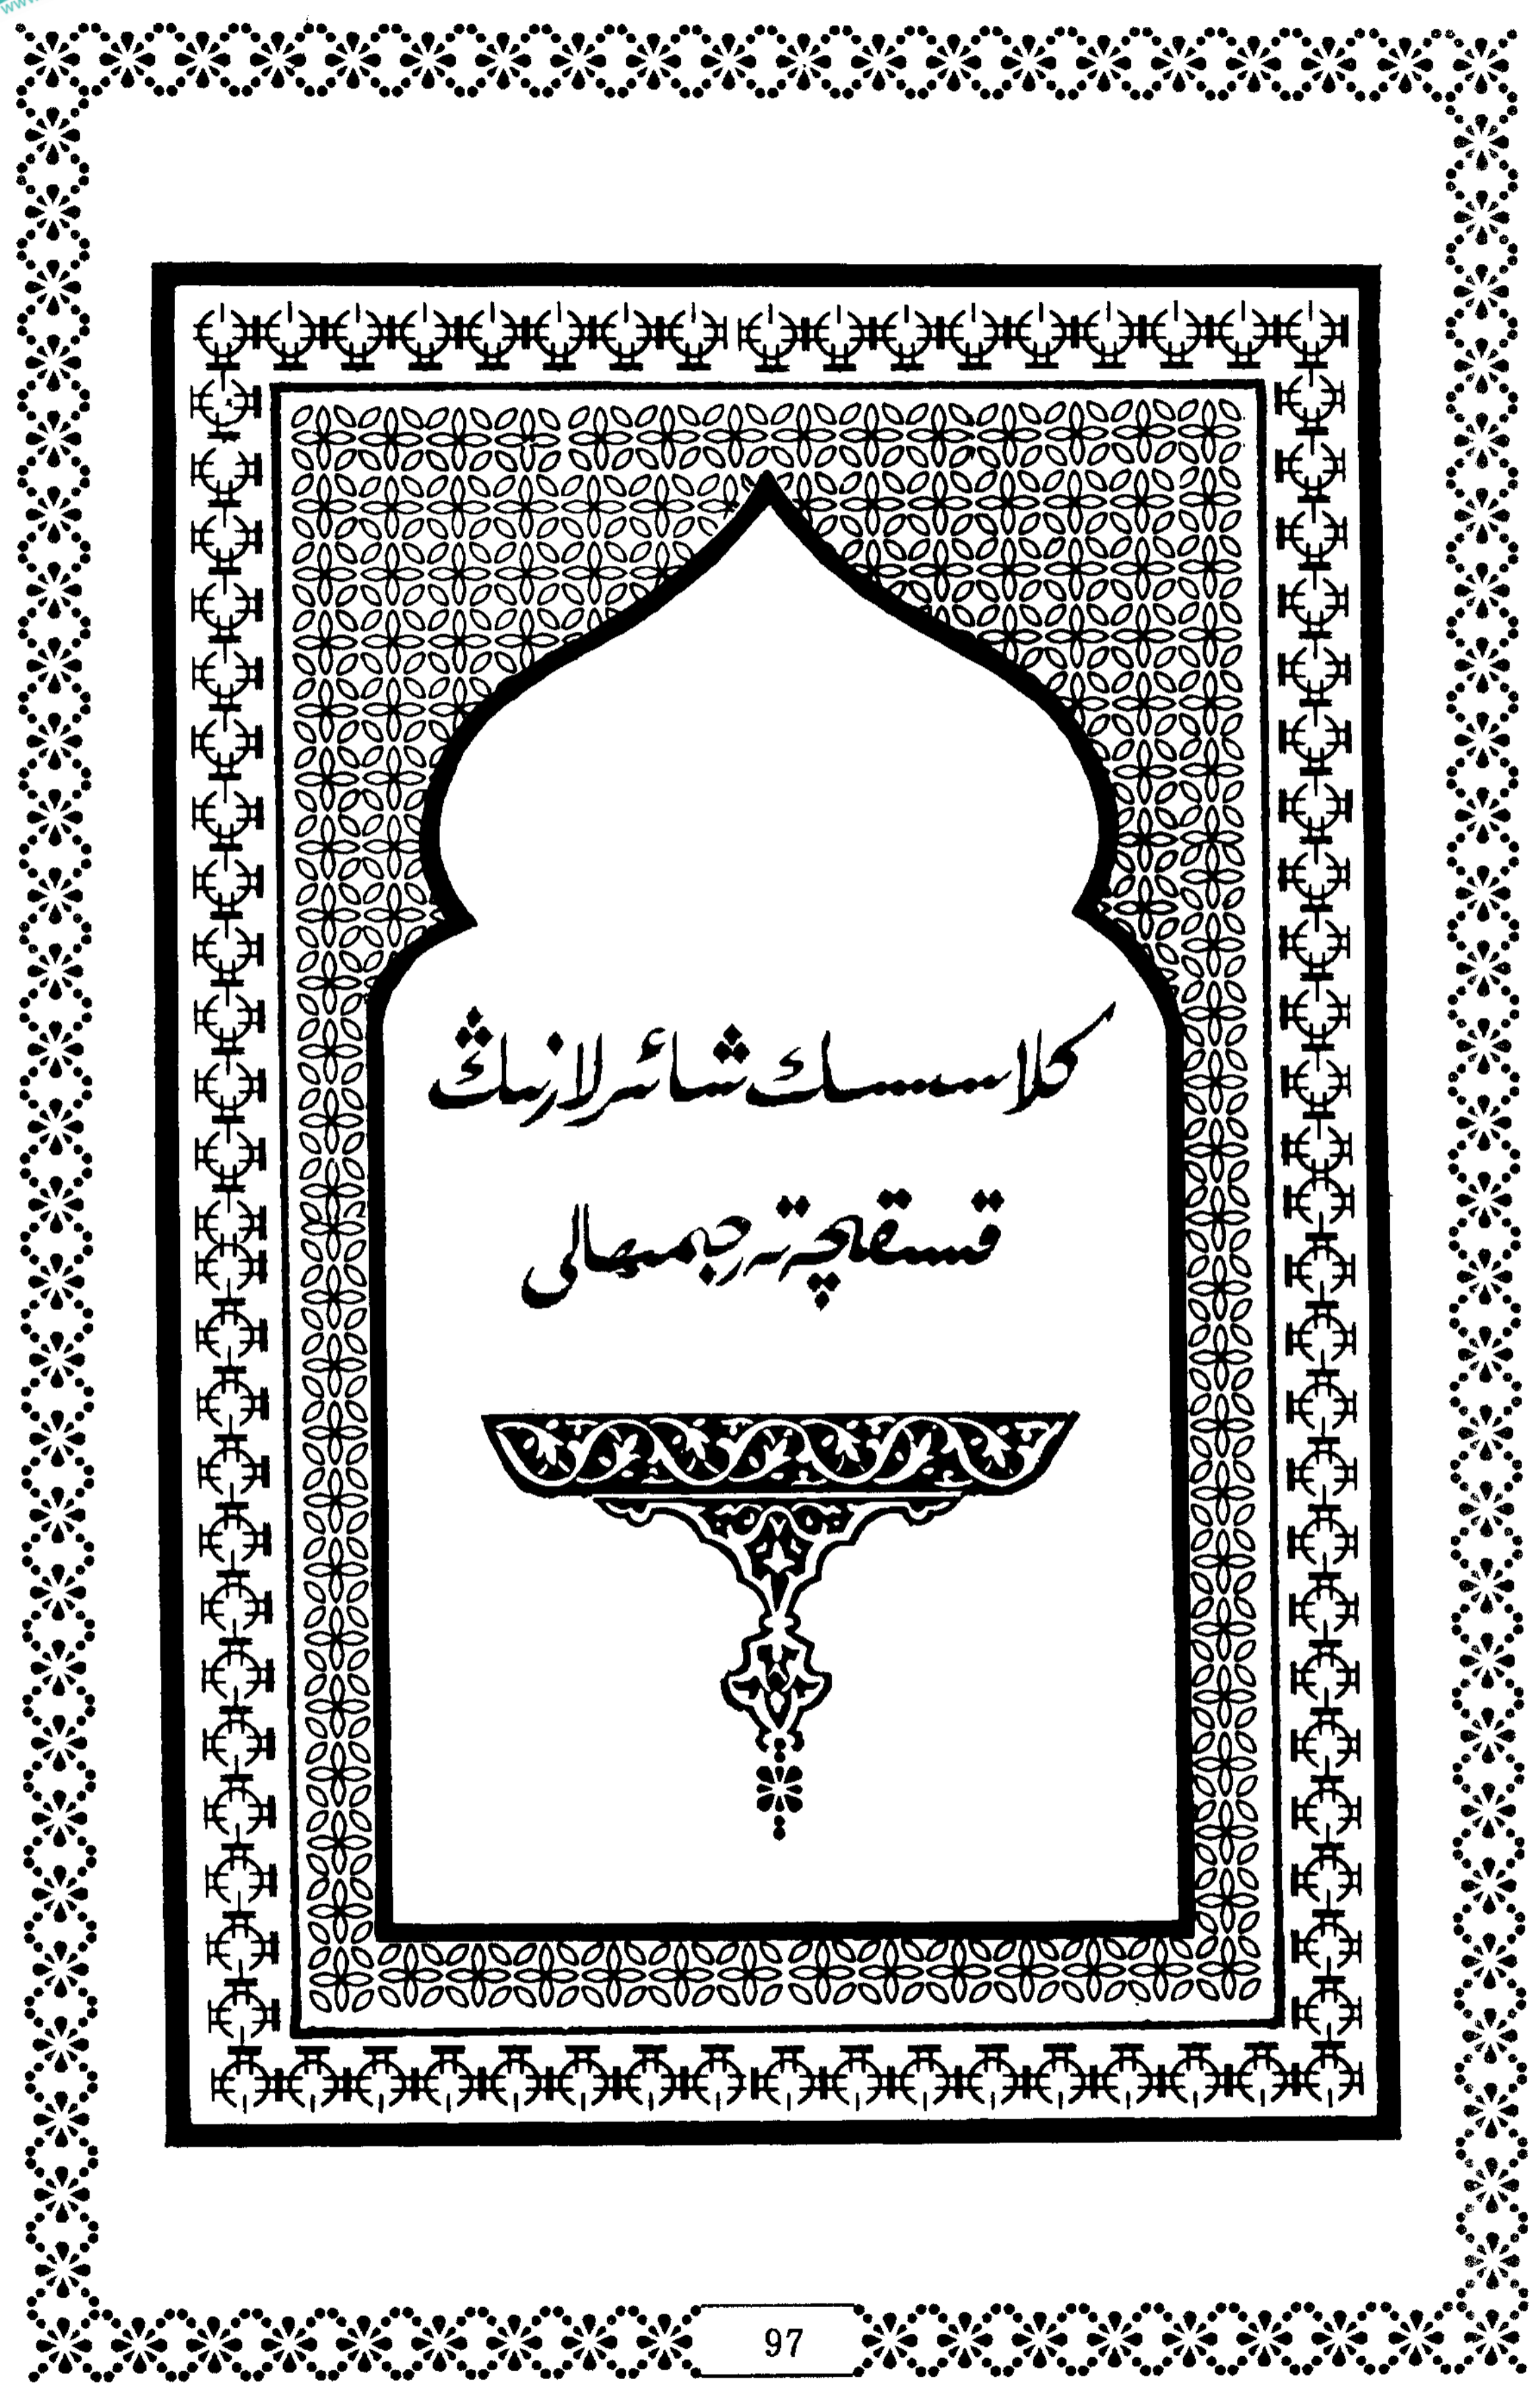 كلاسسىك شائىرلارنىڭ
قىسقىچە تەرجىمىھالى
97